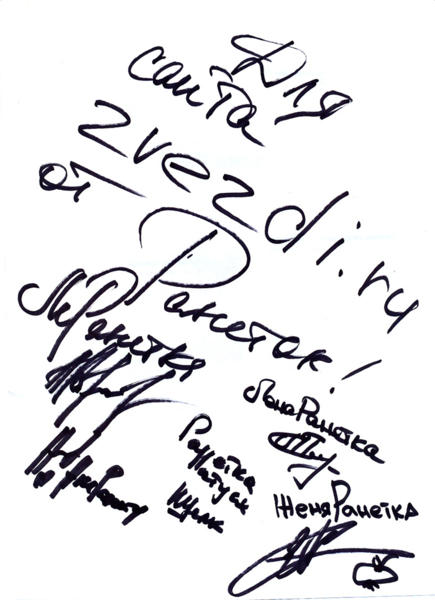 Для
сайта
zvezdi.ru
от
Ранеток!
Ранетка
ЛенаРанетка
Ранетка
Натуся
Щелк
ЖеняРанетка